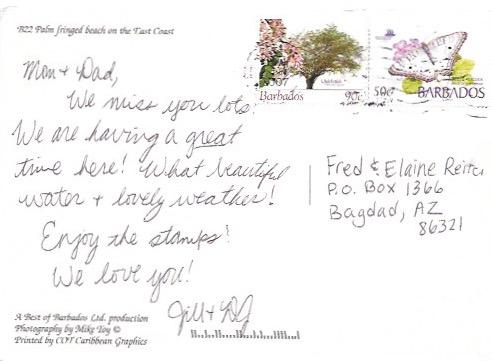 B22 Palm fringed beach on the East Coast
Mom + Dad,
We miss you lots.
We are having a great
time here! What beautiful
water + lovely weather!
Enjoy the stamps!
We love you!
Jill + DJ
Barbados 90c
50c BARBADOS
Fred & Elaine Reiter
P.O. Box 1366
Bagdad, AZ
86321
A Best of Barbados Ltd. production
Photography by Mike Toy ©
Printed by COT Caribbean Graphics